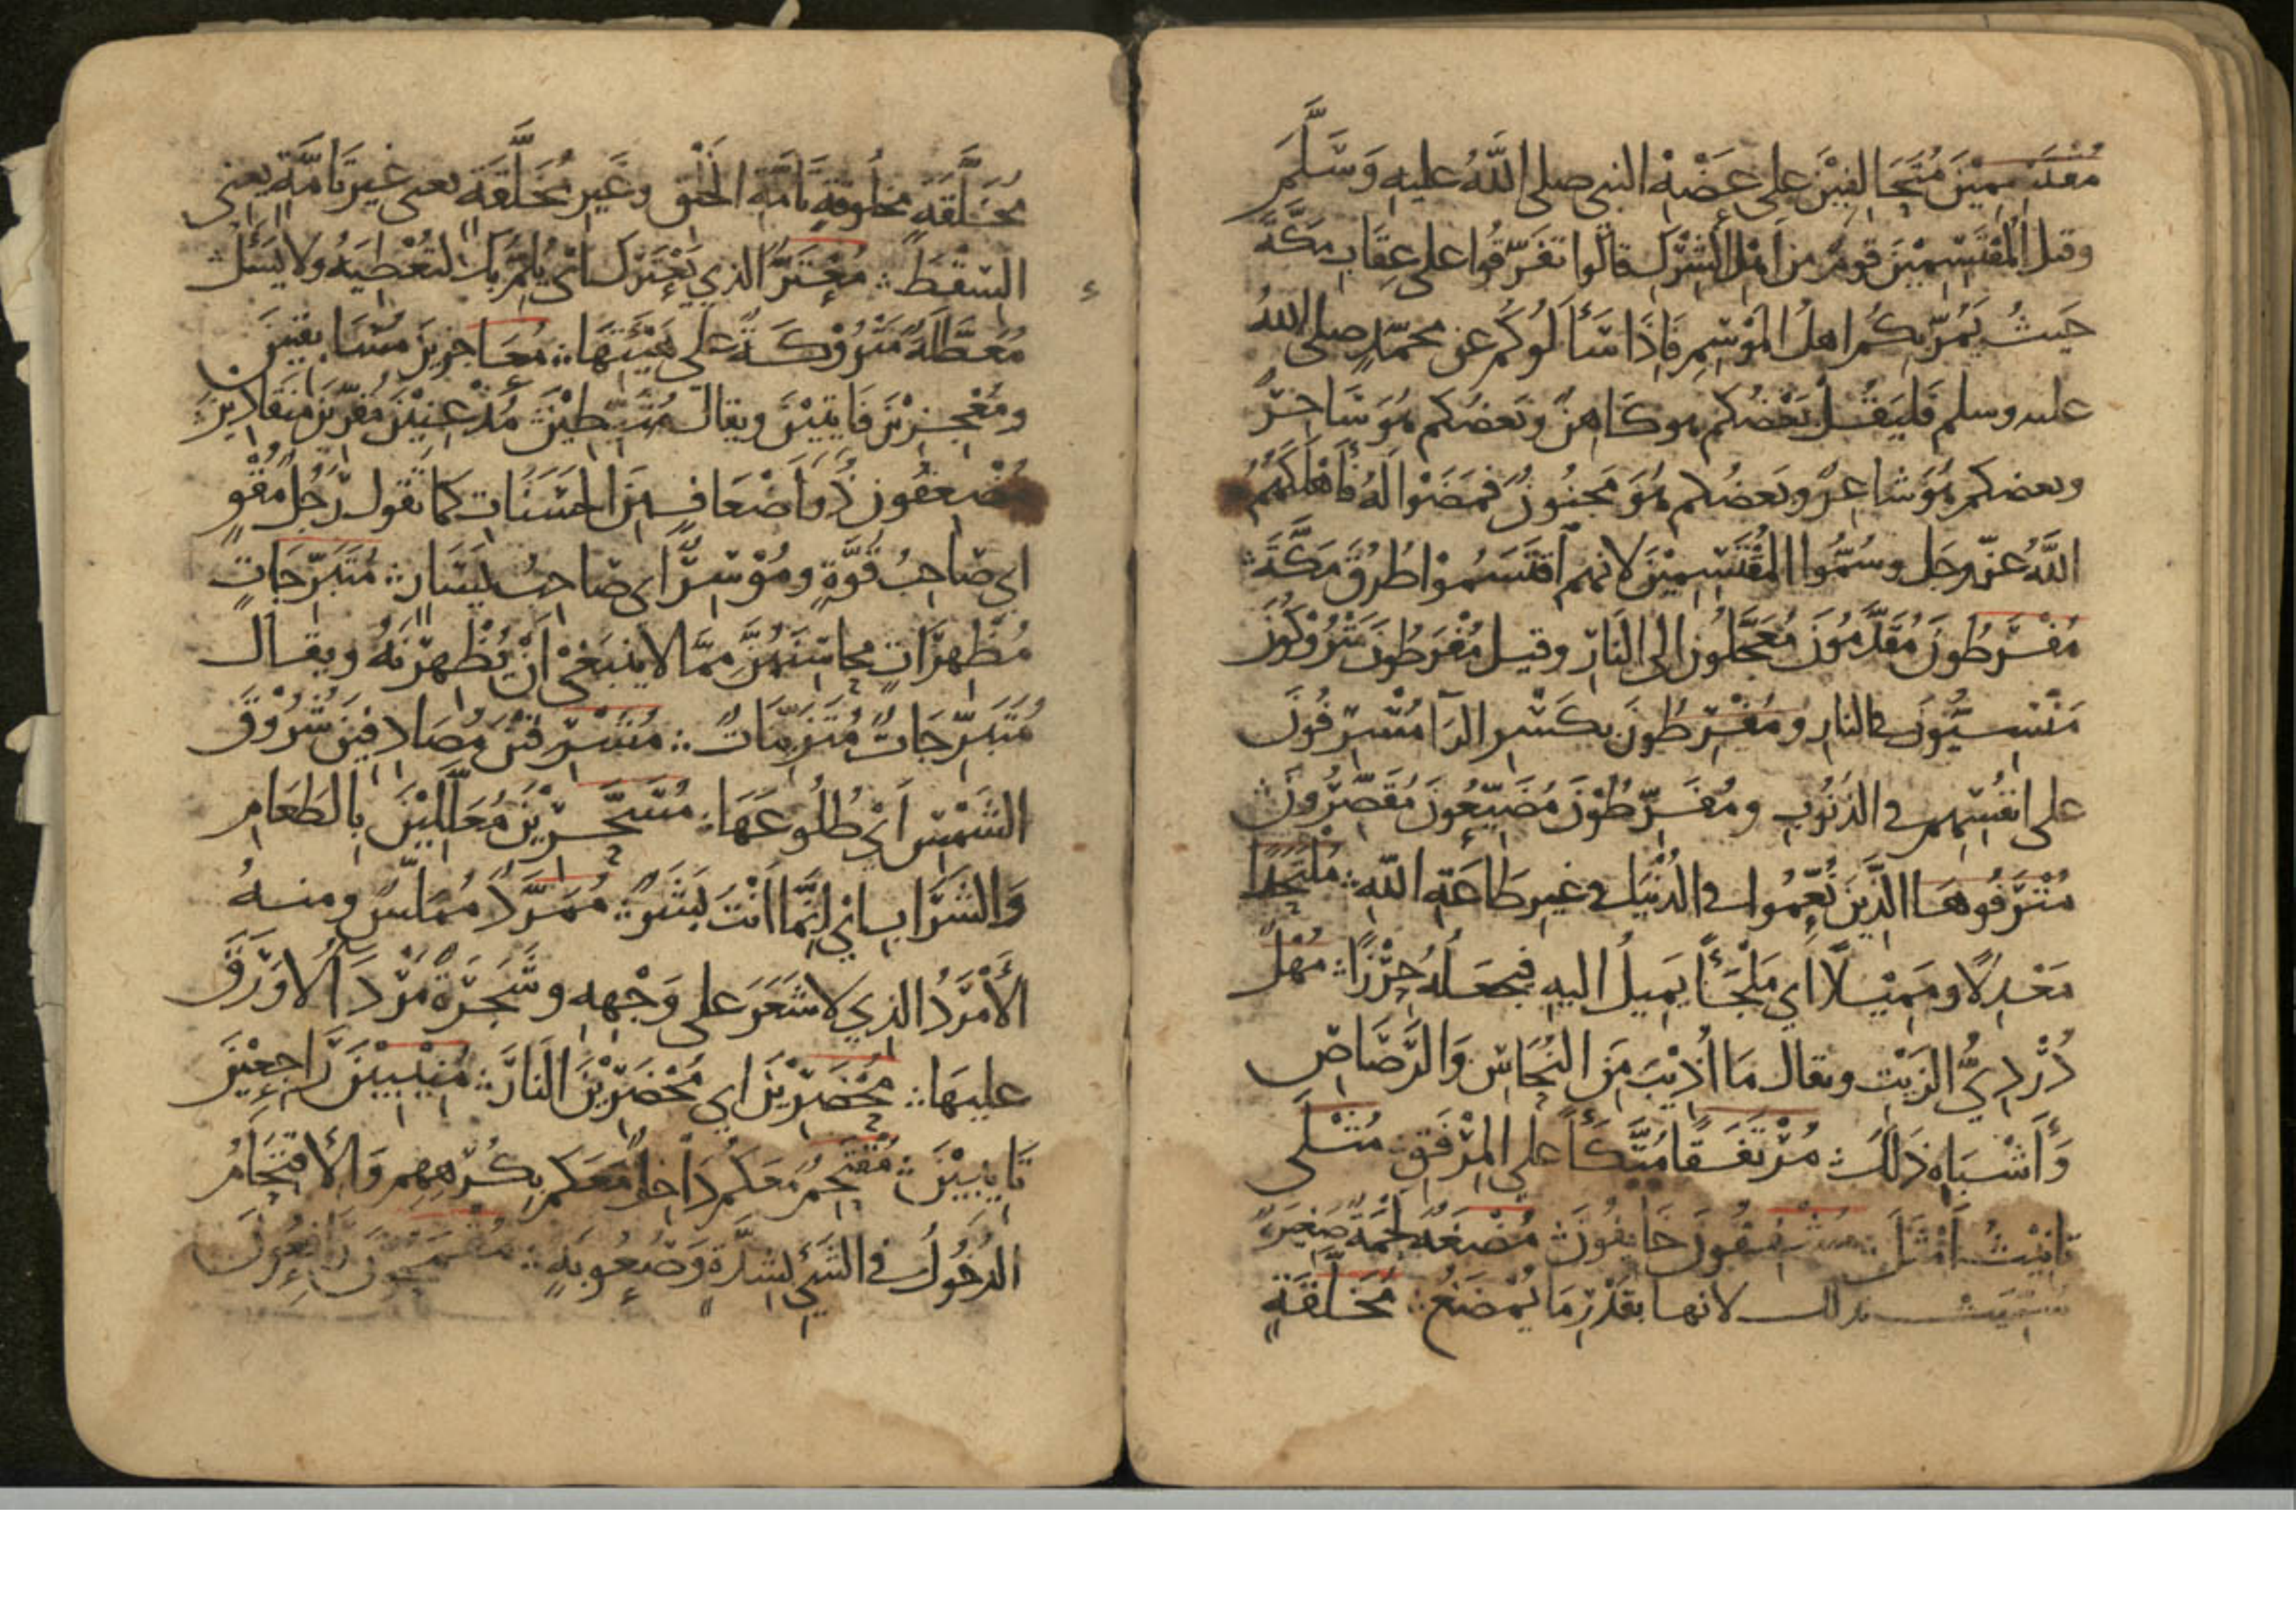 مُقْتَسِمِيْنَ مُتَحَالِفِيْنَ على عَضْهِ النبي صلى اللَّهُ عليهِ وَسَلَّمَ
وقيل المُقْتَسِمِيْنَ قومٌ من أهل الشِّرْكِ قالُوا تفَرَّقُوا على عِقَابِ مكَّةَ
حَيثُ يَمُرُّ بِكُم اهلُ المَوْسِمِ فَإِذَا سَأَلُوكُم عن محمّدٍ صلى اللهُ
عليه وسلم فَليَقُلْ بَعْضُكم هو كَاهِنٌ وبَعضُكم هُوَ سَاحِرٌ
وبعضكم هُوَ شاعِرٌ وبَعضُكم هُوَ مَجنُونٌ فَمَضَوْا لَهُ فَأَهْلَكَهُمُ
اللَّهُ عزّ وجَل وسُمُّوا المُقْتَسِمِيْنَ لانهم اقْتَسَمُوْا طُرُقَ مَكَّةَ
مُفْرَطُونَ مُقَدَّمُونَ مُعَجَّلُونَ الى النَّارِ وقيل مُفْرَطُونَ مَتْرُوْكُونَ
مَنْسِيُّونَ في النارِ ومُفْرِطُونَ بكَسْرِ الرَّا مُسْرِفُونَ
على انفُسِهِم في الذنُوبِ ومُفَرِّطُوْنَ مُضَيِّعُونَ مُقَصِّرُونَ
مُتْرَفُوهَا الَّذِينَ نُعِّمُوا في الدُّنْيَا في غيرِ طَاعَةِ اللهِ مُلْتَحَدًا
مَعْدِلًا ومَمِيْلًا اي مَلْجَأً يَمِيلُ اليهِ فيجعَلُهُ حِرْزًا مُهْل
دُرْدِيُّ الزَيْت ويقال مَا أُذِيْبَ مِنَ النُحَاسِ وَالرَّصَاصِ
وَأَشْبَاهِ ذَلَكَ مُرْتَفَقًا مُتَّكَأً على المِرْفَقِ مُثْلَى
تانِيْثُ أَمْثَلَ مُشْفِقُونَ خَايفُونَ مُضْغَةٌ لَحْمَةٌ صَغِيرَةٌ
سُمِّيَتْ بذلك لانها بقَدْرِ مَا يُمْضَغُ مُخَلَّقَةٍ
مُخَلَّقَةٍ مخلوقةٍ تَامَّةِ الخَلْقِ وغَيرِ مُخَلَّقَةٍ يعنى غيرَ تامَّةٍ يعنى
السّقطَ مُعْتَرَّ الذي يَعْتَرُّكَ اي يُلِمُّ بِكَ لتُعْطِيَهُ ولا يَسْئَلُ
مُعَطَّلَةٌ مَتْرُوْكَةٌ عَلى هَيْئَتِهَا مُعَاجِزِينَ مُسَابِقِينَ
ومُعْجِزِيْنَ فَايتِيْنَ ويقالُ مُثَبِّطِيْنَ مُذْعِنِيْنَ مُقِرِّينَ مُنقَادِينَ
مُضْعِفُونَ ذُوو أَضْعَافٍ مِنَ الحَسَنَاتِ كما تقُول رَجُلٌ مُقْوٍ
اي صَاحِبُ قُوَّةٍ ومُوْسِرٌ اي صَاحِبُ يَسَارٍ مُتَبَرِّجَاتٍ
مُظْهِرَاتٍ محَاسِنَهُنَّ مِمَّا لا ينبَغي أَنْ يُظْهِرْنَهُ ويقال
مُتَبَرِّجَاتٌ مُتَزَيِّنَاتٌ مُشْرِقِيْنَ مُصَادِفِيْنَ شُرُوْقَ
الشَمْسِ أَيْ طُلُوعَهَا مُسَحَّرِيْنَ مُعَلَّلِيْنَ بِالطَعَامِ
وَالشَرَابِ اي إِنَّمَا أَنْتَ بَشَرٌ مُمَرَّدٌ مُمَلَّسٌ ومنهُ
الأَمْرَدُ الذي لا شَعَرَ على وَجْهِهِ وشَجَرَةٌ مَرْدَآُ لا وَرَقَ
عليهَا مُحْضَرِيْنَ اي مُحْضَرِيْنَ النَارَ مُنِيْبِيْنَ رَاجِعِيْنَ
تَايبِيْنَ مُقْتَحِمٌ مَعَكُم دَاخِلٌ مَعَكم بِكُرْهِهِم وَالاقتِحَامُ
الدخُولُ في الشَيْءِ بِشِدَّةٍ وَصُعُوبَةٍ مُقْمَحُونَ رَافِعُونَ